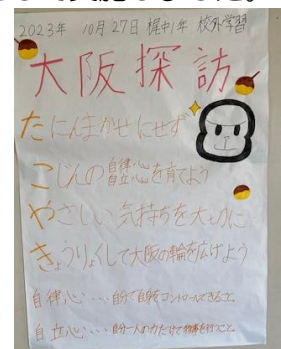 2023年 10月27日 梶中1年 校外学習
大阪探訪
たにんまかせにせず
こじんの自律心自立心を育てよう
やさしい気持ちを大切に
きょうりょくして大阪の輪を広げよう
自律心・・・自分で自身をコントロールできること。
自立心・・・自分一人の力だけで物事を行うこと。